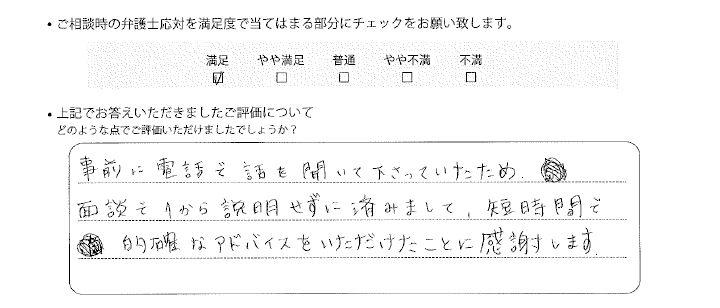 ・ご相談時の弁護士応対を満足度で当てはまる部分にチェックをお願い致します。
満足 やや満足 普通 やや不満 不満
☑ □ □ □ □
・上記でお答えいただきましたご評価について
どのような点でご評価いただけましたでしょうか？
事前に電話で話を聞いて下さっていたため、
面談で1から説明せずに済みまして、短時間で
的確なアドバイスをいただけたことに感謝します。